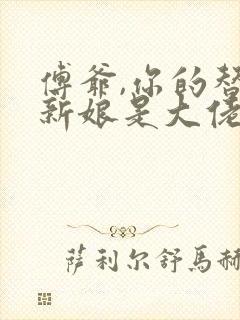 傅爷,你的替
新娘是大佬
萨利尔舒馬赫